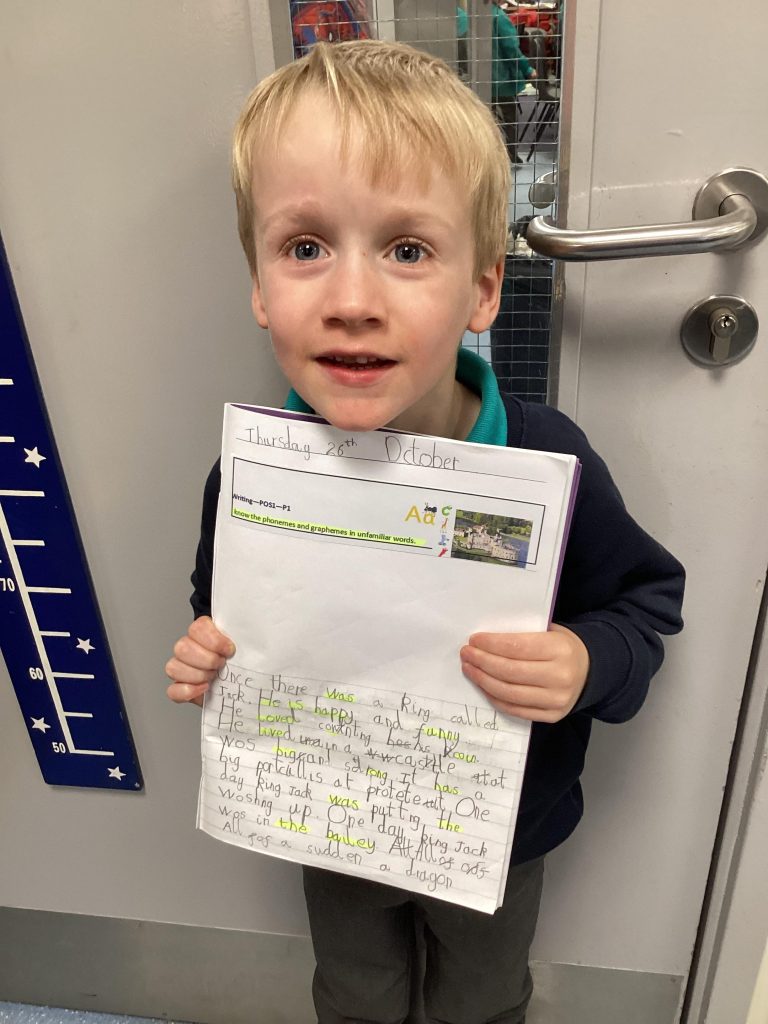 Thursday 26th October
Writing—POS1—P1
know the phonemes and graphemes in unfamiliar words.
Aa
Once there was a King called
Jack. He is happy and funny.
He loved counting
He lived in a castle that
wos big and strong. It has a
big portcullis at One
day King Jack was putting the
woshing up. One day King Jack
wos in the bailey. All of
All of a sudden a dragon
70
60
50